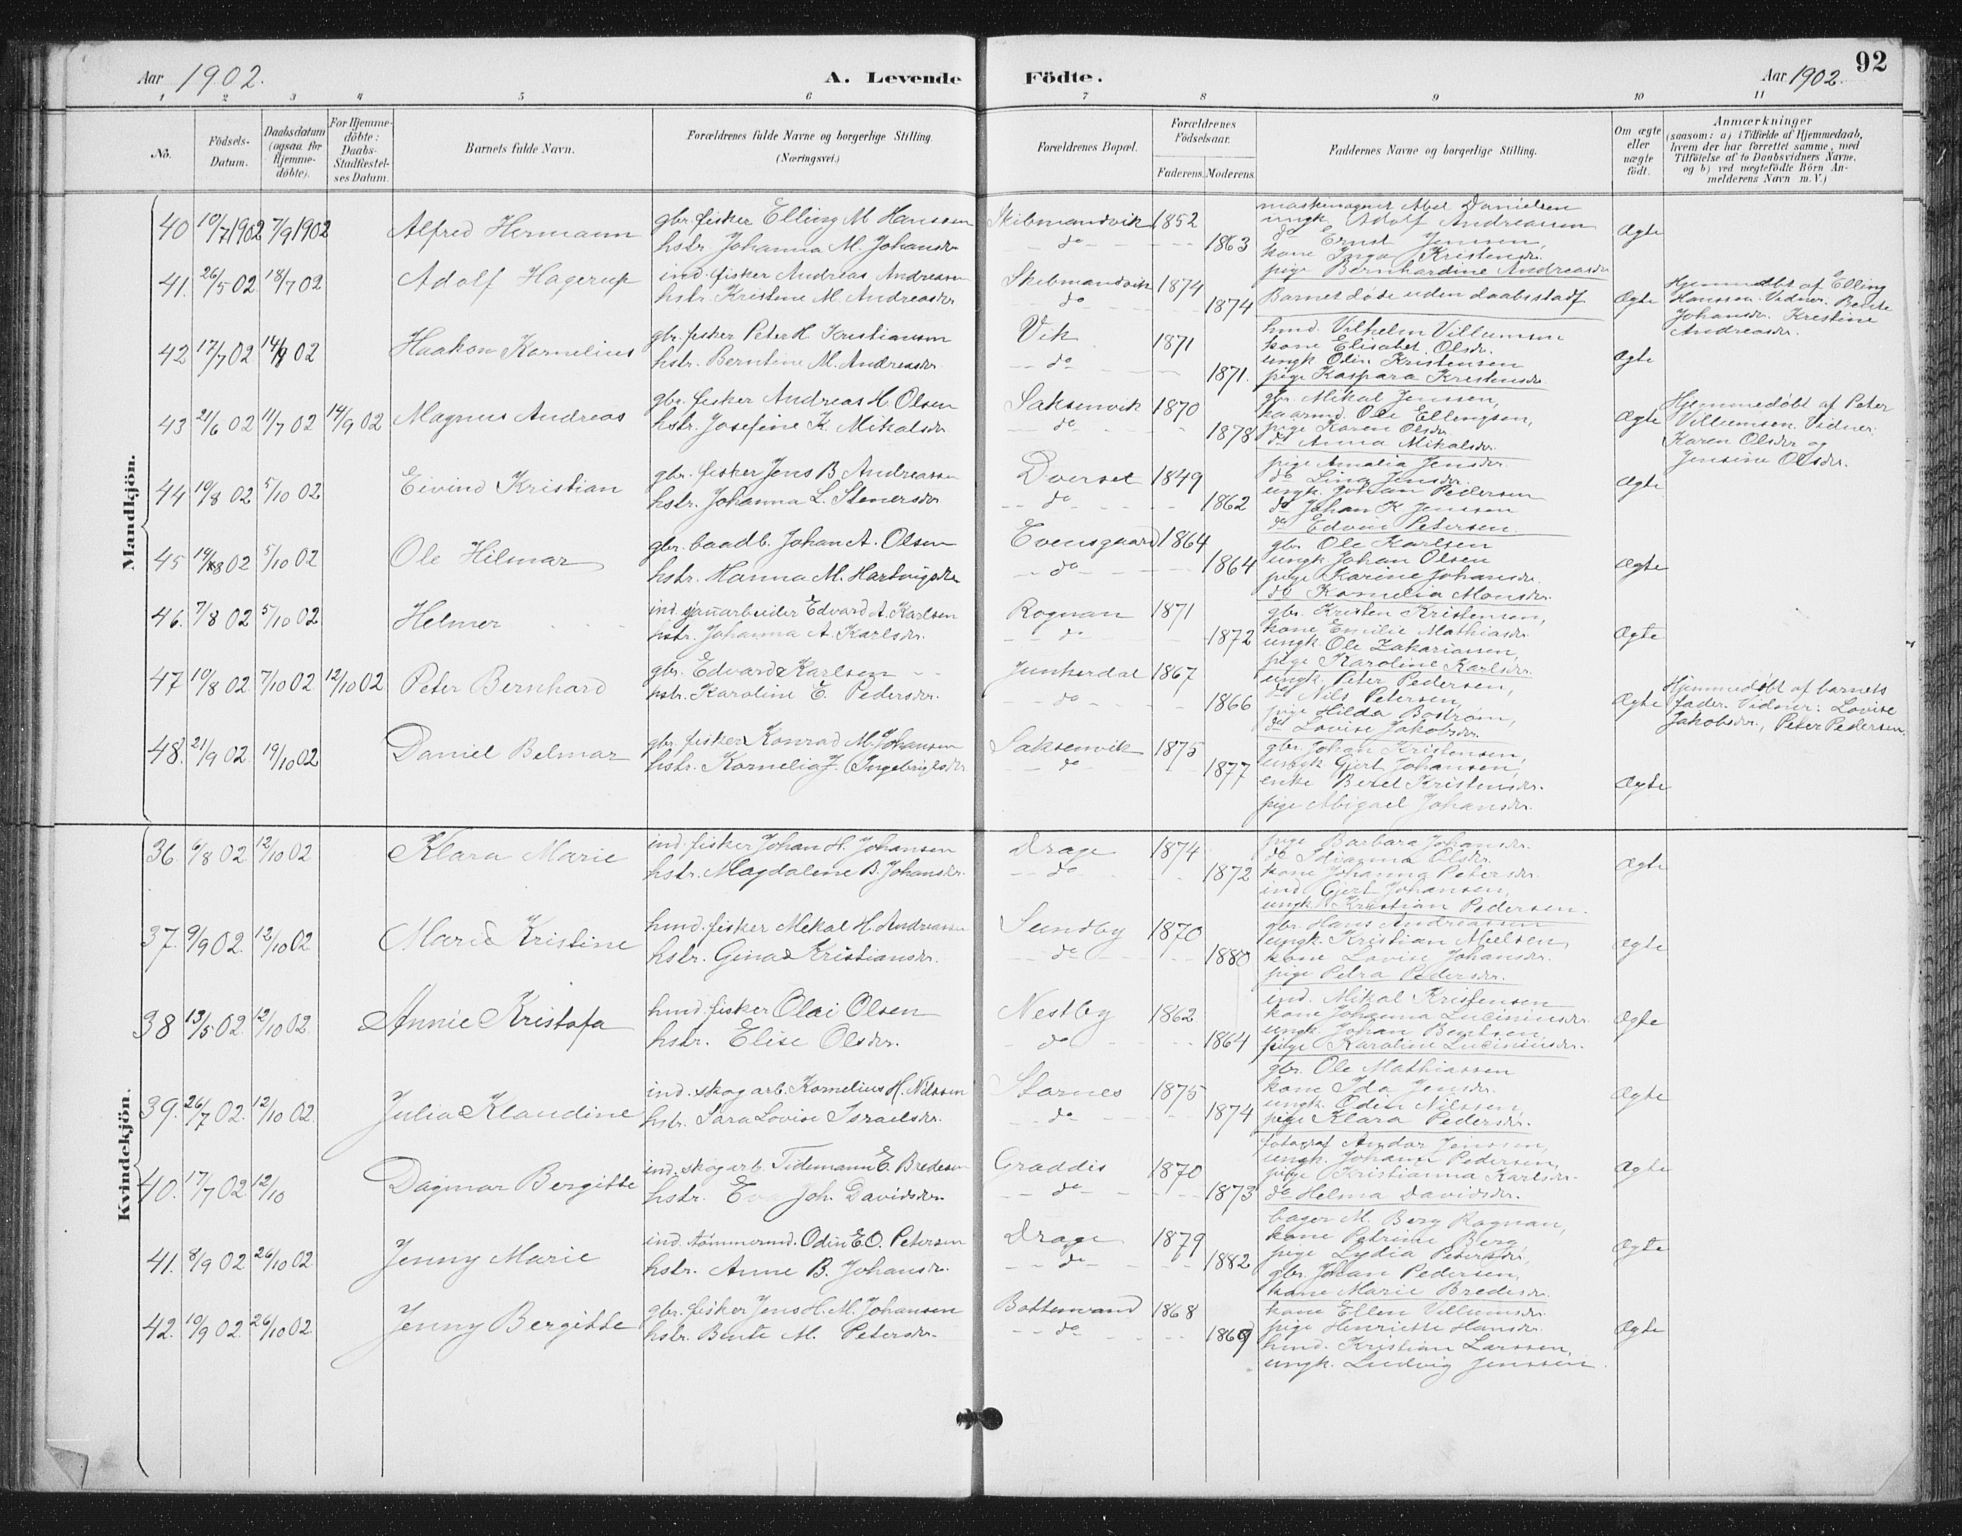 Aar 1902. A. Levende Födte. Aar 1902. 92
1 2 3 4 5 6 7 8 9 10 11
No. Födsels-Datum. Daabsdatum (ogsaa for Hjemme-döbte). For Hjemme-döbte: Daabs-Stadfæstel-ses Datum. Barnets fulde Navn. Forældrenes fulde Navne og borgerlige Stilling. (Næringsvei.) Forældrenes Bopæl. Forældrenes Födselsaar. Faderens. Moderens. Faddernes Navne og borgerlige Stilling. Om ægte eller uægte födt. Anmærkninger (saasom: a) i Tilfælde af Hjemmedaab, hvem der har forrettet samme, med Tilföielse af to Daabsvidners Navne, og b) ved uægtefödte Börn An-melderens Navn m. V.)
Mandkjön.
40 10/7 1902 7/9 1902 Alfred Hermann gbr. fisker Elling M. Hanssen Skibmandvik 1852 Abel Danielsen
ungk. Adolf Andreassen
hstr. Johanna M. Johansdr do 1863 do Ernst Jenssen, Ægte
kone Inga Kristensdr.
pige Bernhardine Andreasdr
41. 26/5 02 18/7 02 Adolf Hagerup ind. fisker Andreas Andreassen Skibmandvik 1874
hstr. Kristine M. Andreasdr do 1874 Barnet döde uden daabsstadf Ægte Hjemmedöbt af Elling
Hanssen. Vidner: Bente
Johansdr. Kristine
Andreasdr.
42 17/7 02 14/9 02 Haakon Kornelius gbr. fisker Peter H. Kristiansen Vik 1871 hmd. Vilhelm Villumsen
kone Elisabet Olsdr.
hstr. Berntine M. Andreasdr. do 1871. ungk Odin Kristensen Ægte
pige Kaspara Kristensdr.
43 21/6 02 11/7 02 14/9 02 Magnus Andreas gbr. fisker Andreas H. Olsen Saksenvik 1870 gbr. Mikal Jenssen,
kaarmd. Ole Ellingsen,
hstr. Josefine K. Mikalsdr do 1878 pige Karen Olsdr Ægte Hjemmedöbt af Peter
do Anna Mikalsdr. Villumsen. Vidner:
Karen Olsdr og
Jensine Olsdr.
44 10/8 02 5/10 02 Eivind Kristian gbr. fisker Jens B. Andreassen Dverset 1849 pige Amalia Jensdr.
do Lina Jensdr.
hstr. Johanna L. Stenersdr do 1862 ungk. Johan Pedersen Ægte
do Johan K Jenssen
do Edvin Petersen.
45 19/8 02 5/10 02 Ole Hilmar gbr. baadb. Johan A. Olsen Evensgaard 1864 gbr. Ole Karlsen
ungk Johan Olsen
hstr. Hanna M. Hartvigsdr do 1864 pige Karine Johansdr. Ægte
do Kornelia Monsdr.
46. 7/8 02 5/10 02 Helmer ind. gruarbeider Edvard A. Karlsen Rognan 1871 gbr. Kristen Kristensen,
kone Emilie Mathiasdr
hstr. Johanna A. Karlsdr. do 1872 ungk Ole Zakariassen, Ægte
pige Karoline Karlsdr.
47 10/8 02 7/10 02 12/10 02 Peter Bernhard gbr. Edvard Karlsen Junkerdal 1867 ungk. Peter Pedersen,
do Nils Petersen,
hstr. Karoline E. Pedersdr. do 1866 pige Hilda Boström, Ægte Hjemmedöbt af barnets
do Lovise Jakobsdr. fader. Vidner: Lovise
Jakobsdr, Peter Pedersen.
48. 21/9 02 19/10 02 Daniel Belmar gbr. fisker Konrad M. Johansen Saksenvik 1875 gbr. Johan Kristensen,
ungk Gjert Johansen,
hstr. Kornelia J. Ingebrigtsdr do 1877 enke Beret Kristensdr. Ægte
pige Abigael Johansdr.
Kvindekjön.
36. 6/8 02 12/10 02 Klara Marie ind. fisker Johan H. Johansen Drage 1874 pige Barbara Johansdr.
do Olsdr.
hstr. Magdalene B. Johansdr. do 1872 kone Johanna Petersdr. Ægte
ind. Gjert Johansen,
ungk. Kristian Pedersen.
37. 9/9 02. 12/10 02 Marie Kristine hmd. fisker Mekal H. Andreassen Sundby 1870 gbr. Hans Andreassen
ungk. Kristian Nielsen,
hstr. Gina Kristiansdr. do 1880 kone Lovise Johansdr. Ægte
pige Petra Pedersdr.
38 13/5 02 12/10 02 Annie Kristofa hmd. fisker Olai Olsen Nestby 1862 ind. Mikal Kristensen
kone Johanna Luciniusdr.
hstr. Elise Olsdr. do 1864 ungk Johan Bentsen Ægte
pige Karoline Luciniusdr.
39. 26/7 02. 12/10 02. Julia Klaudine ind. skogarb. Kornelius H. Nilssen Stornes 1875 gbr. Ole Mathiassen
kone Ida Jensdr.
hstr. Sara Lovise Israelsdr. do 1874 ungk. Odin Nilssen, Ægte
pige Klara Pedersdr.
40. 17/7 02 12/10 Dagmar Bergitte ind. skogarb. Tidemann E. Bredesen Graddis 1870 fotograf Andor Jenssen,
ungk. Johann Pedersen,
hstr. Eva Joh. Davidsdr. do 1873 pige Kristianna Karlsdr. Ægte
do Helma Davidsdr.
41. 8/9 02 26/10 02 Jenny Marie ind. tömmermd. Odin E.O. Petersen Drage 1879 bager M. Berg Rognan,
kone Petrine Berg
hstr. Anne B. Johansdr. do 1882 pige Lydia Petersdr, Ægte
gbr. Johan Pedersen,
kone Marie Bredesdr.
42. 10/9 02 26/10 02 Jenny Bergitte gbr. fisker Jens H. M. Johansen Bottenvand 1868 kone Ellen Villumsdr.
pige Henriette Hansdr.
hstr. Bente M. Petersdr. do 1869 hmd. Kristian Larssen, Ægte
ungk. Ludvig Jenssen.